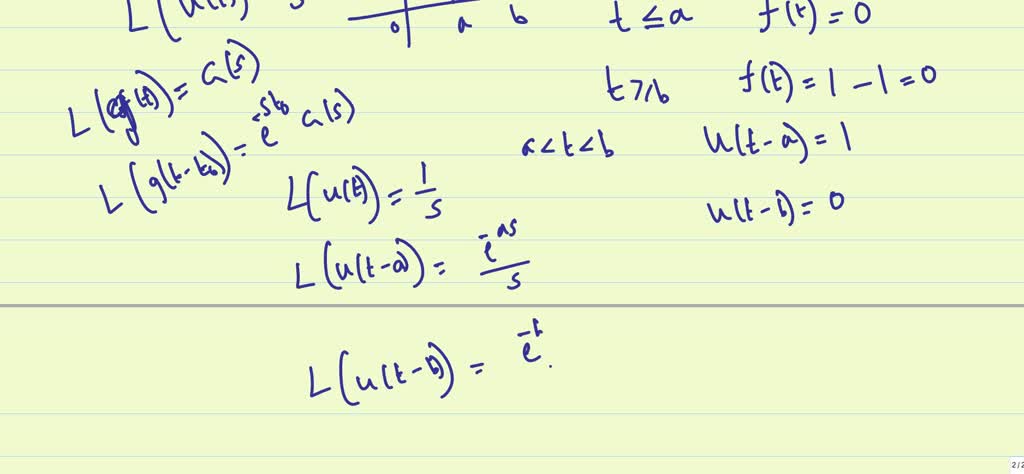 L(u(t)) s
0 a b
t ≤ a f(t) = 0
L(g(t)) = G(s)
t ≥ b f(t) = 1 - 1 = 0
L(g(t-t₀)) = e^-st₀ G(s)
a < t < b u(t-a) = 1
L(u(t)) = 1/s
u(t-b) = 0
L(u(t-a)) = e^-as/s
L(u(t-b)) = e^-b
2/2